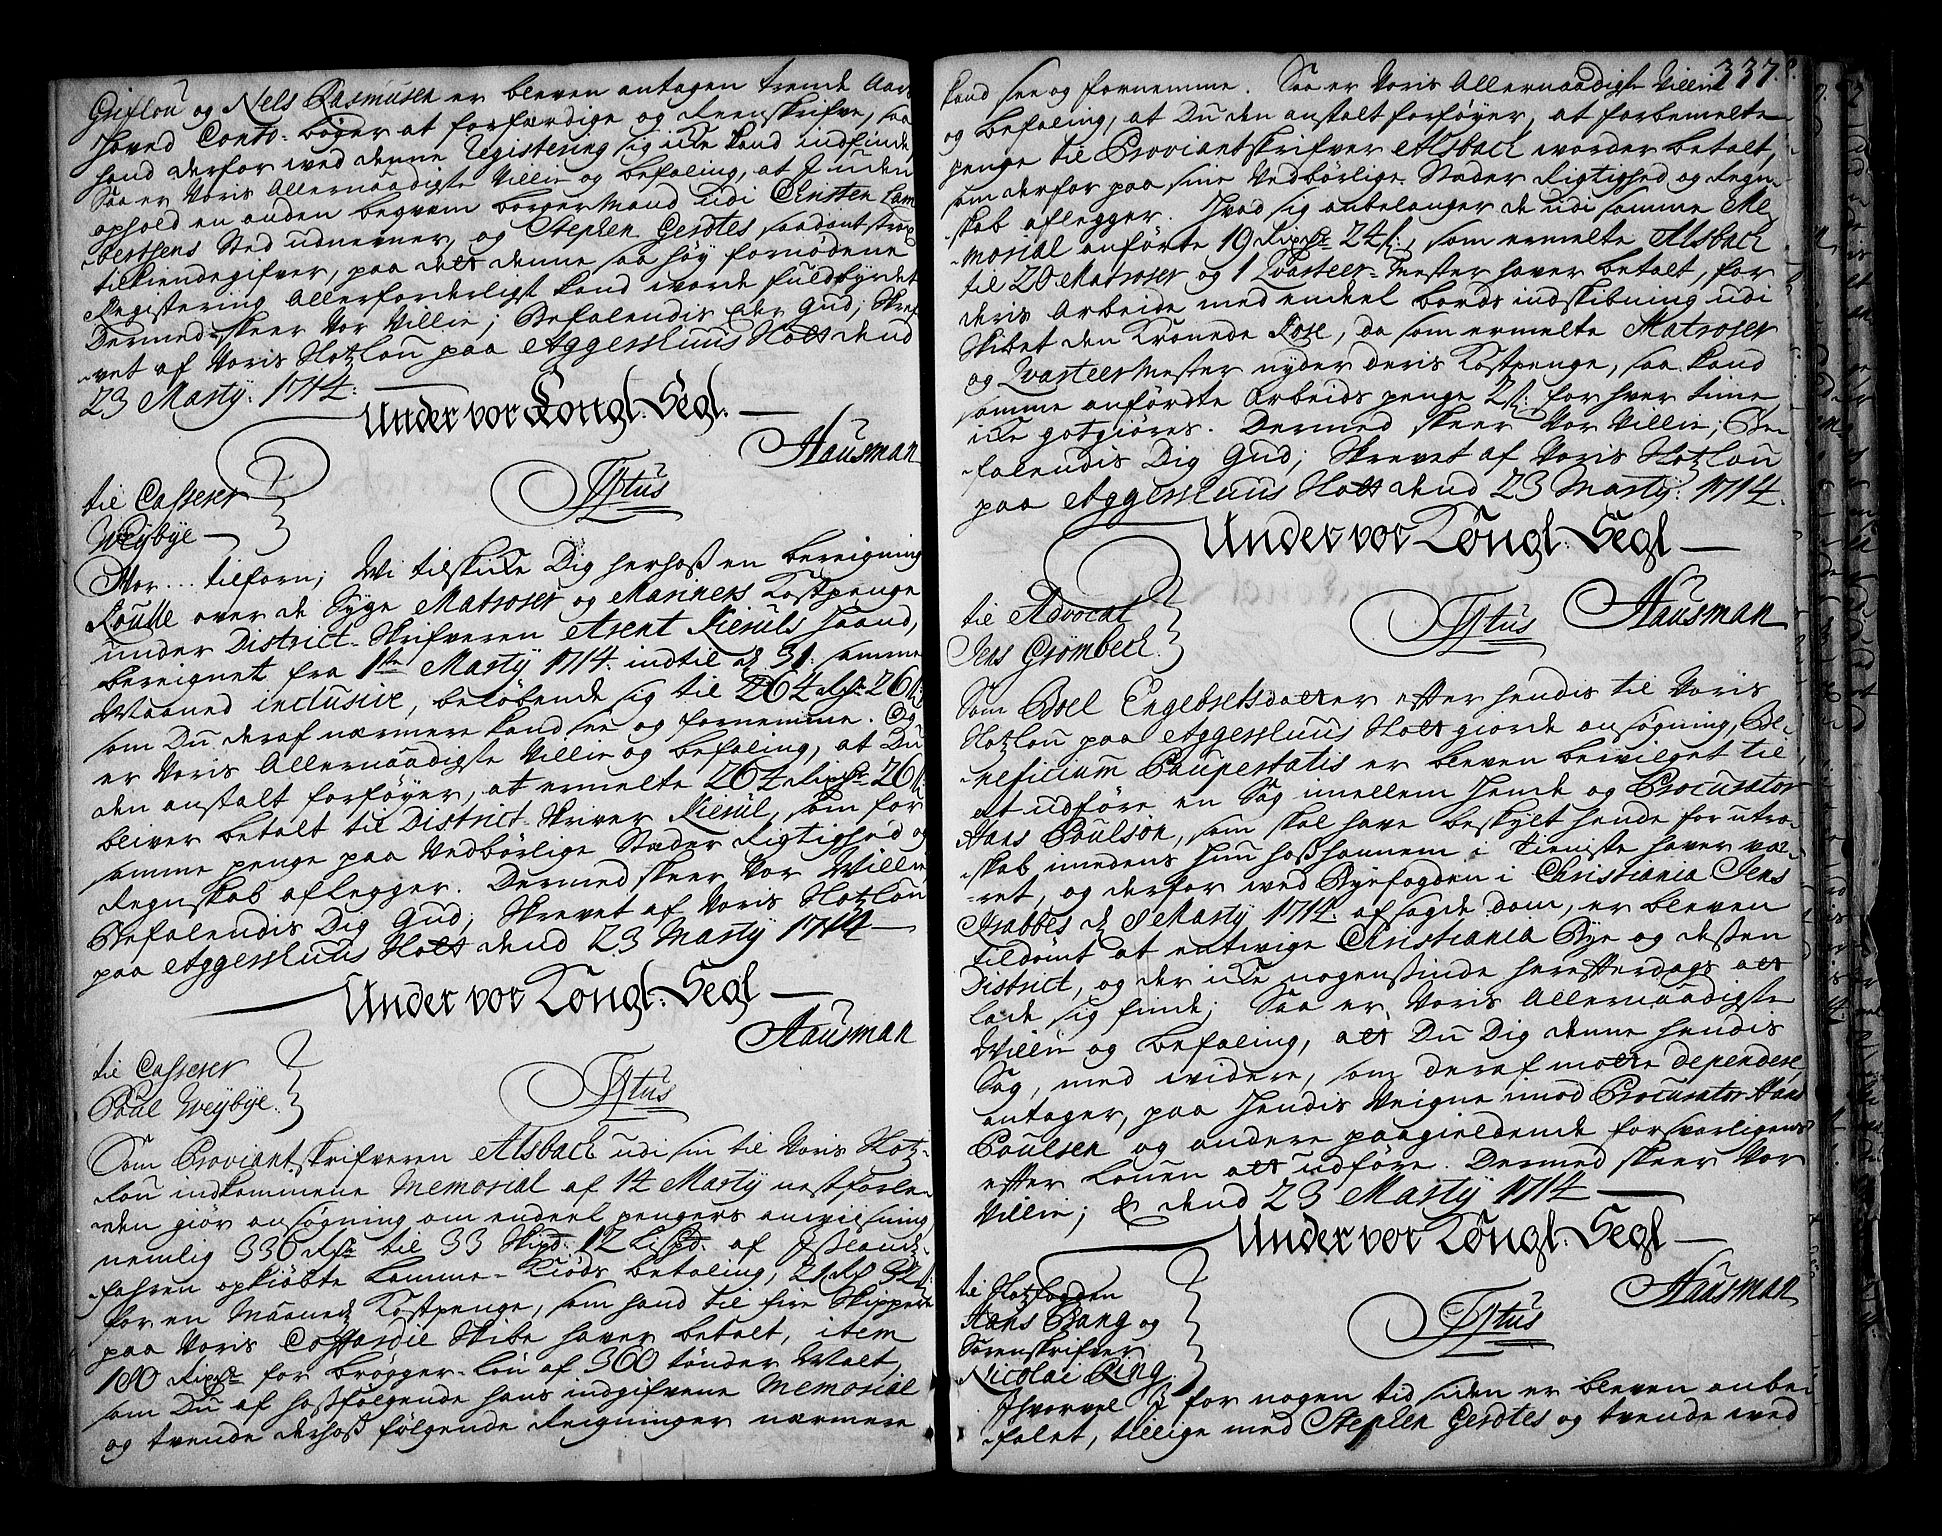 Griflou og Nels Rasmusen er bleven antagen tremde Aar
Hoved Conto-bøger at forferdige og Reenskrifve, saa
hand derfor wed denne Registering sig icke kand indfinde
Saa er Voris Allernaadigste Villie og befaling, at I uden
ophold en anden beqvem borgermand udi Christen Lam
bertsens Sted udnevner, og Stephen Gerdtes saadant strax
tilkiendegifver, paa det denne saa høy fornødene
Registering Allerforderligst kand worde fuldbyrdet
Dermed skeer Vor Villie; Befalendis Eder Gud; Skref
vet af Voris Slotzlou paa Aggershuus Slott dend
23 Martÿ. 1714.
Under vor Kongl: Segl.
Hausman
til Casserer
Weÿbye
Tÿtus
Vor... tilforn; Wi tilskicke Dig herhos en bereigning
Roulle over de Syge Matroser og Mariners Kostpenge
under District-Skrifveren Arent Kieruls Haand,
bereignet fra 1ste Martÿ 1714. indtil d 31. samme
Maaned inclusive, beløbende sig til 264 rdr 26 s:
som Du deraf nærmere kand see og fornemme. Og
er Voris Allernaadigste Villie og befaling, at Du
den anstalt forføyer, at ermelte 264 Rixdr 26 s:
bliver betalt til District-Skriver Kierul, som for
samme penge paa Vedbørlige Stæder Rigtighed og
Regnskab aflegger. Dermed skeer Vor Willie
Befalendis Dig Gud; Skrevet af Voris Slotzlou
paa Aggershuus Slott dend 23 Martÿ 1714
Under vor Kongl: Segl
Hausman
til Casserer
Poul Weÿbye.
Tÿtus
Som Proviantskrifveren Alsbach udi sin til Voris Slotz-
Lou indkommene Memorial af 14 Martÿ nestforle-
den giør ansøgning om endeel pengers anviisning
nemlig 336 Rdr til 33 Skipd: 12 Lispd: af Jsland-
fahren opkiøbte Lamme-Kiøds betaling, 21 Rd 32 s:
for en Maaneds Kostpenge, som hand til fire Skippere
paa Voris Coffardie Skibe haver betalt, item
180 Rixdr for brøgger-Løn af 360 tønder Malt,
som Du af hosfølgende hans indgifvene Memorial
og tvende derhos følgende Reigninger nærmere
337.
kand see og fornemme. Saa er Voris Allernaadigste Villie
og befaling, at Du den anstalt forføyer, at forbemelte
penge til Proviantskrifver Alsbach worder betalt,
som derfor paa sine Vedbørlige Stæder Rigtighed og Regn-
skab aflegger. Hvad sig anbelanger de udi samme Me-
morial anførte 19 Rixdr 24 s:, som ermelte Alsbach
til 20 Matroser og 1 Qvarteer-Mester haver betalt, for
deris Arbeide med endeel bords indskibning udi
Skibet den Kronede Rose, da som ermelte Matroser
og Qvarteermester nyder deris Kostpenge, saa kand
samme anførdte Arbeids penge 2 s: for hver time
icke gotgiøres. Dermed skeer Vor Villie; Be-
falendis Dig Gud; Skrevet af Voris Slotzlou
paa Aggershuus Slott dend 23 Martÿ. 1714.
Under vor Kongl: Segl
til Advocat
Jens Grømbech.
Tÿtus
Hausman
Som Boel Engebretsdatter efter hendis til Voris
Slotzlou paa Aggershuus Slott giorde ansøgning, Be-
neficium Paupertatis er bleven bevilget til
at udføre en Sag imellem Hende og Procurator
Hans Poulsøn, som skal have beskylt hende for utro-
skab imedens Hun hoshannem i Tieneste haver væ-
ret, og derfor wed Byefogden i Christiania Jens
Krabbes d 8 Martÿ 1714. afsagde dom, er bleven
tildømt at entwige Christiania Bye og dessen
District, og der icke nogensinde herefterdags att
lade sig finde; Saa er Voris Allernaadigste
Willie og befaling, att Du Dig denne hendis
Sag, med widere, som deraf motte dependere
antager, paa Hendis Veigne imod Procurator Hans
Poulsen og andere paagieldende forsvarligens
efter Louen att udføre. Dermed skeer Vor
Villie; &c dend 23 Martÿ 1714
Under vor Kongl: Segl
til Slotzfogden
Hans Bang og
Sorenskrifver
Nicolai Ring.
Hausman
Tÿtus
Jhvorvel I for nogen tid siden er bleven anbe-
falet, tillige med Stephen Gerdtes og tvende wed